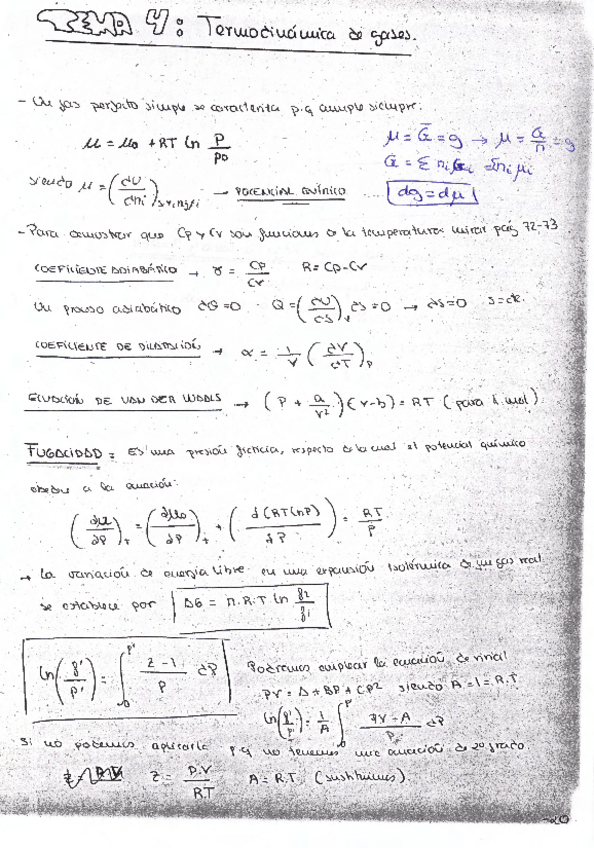 TEMA 4: Termodinámica de gases.
- Un gas perfecto simple se caracteriza p.q cumple siempre:
μ = μ₀ + RT ln P/P₀
μ = G̅ = g → μ = G/n = g
G = Σ nᵢ G̅ᵢ = Σnᵢ μᵢ
siendo μ = (dU/dnᵢ)s,v,nj≠i → POTENCIAL QUÍMICO .... dg = dμ
- Para demostrar que Cp y Cv son funciones de la temperatura mirar pág 72-73
COEFICIENTE ADIABÁTICO → γ = Cp/Cv R = Cp-Cv
Un proceso adiabático dQ=0 Q = (dU/dS)v dS = 0 → dS=0 S=cte.
COEFICIENTE DE DILATACIÓN → α = 1/V (dV/dT)p
ECUACIÓN DE VAN DER WAALS → (P + a/V²)(V-b) = RT (para 1 mol).
FUGACIDAD = Es una presión ficticia, respecto de la cual el potencial químico
obedece a la ecuación:
(dμ/dP)T = (dμ₀/dP)T + (d(RT lnP)/dP) = RT/P
→ La variación de energía libre en una expansión isotérmica de un gas real
se establece por ΔG = n.R.T ln f₂/f₁
ln(f'/P') = ∫₀^P' z-1/P dP
Podremos emplear la ecuación de virial
PV = A + BP + CP² siendo A = 1 = R.T
ln(f'/P') = 1/A ∫₀^P' PV-A/P dP
Si no podemos aplicarla p.q no tenemos una ecuación de 2º grado
z = P.V/R.T A = R.T. (sustituimos).